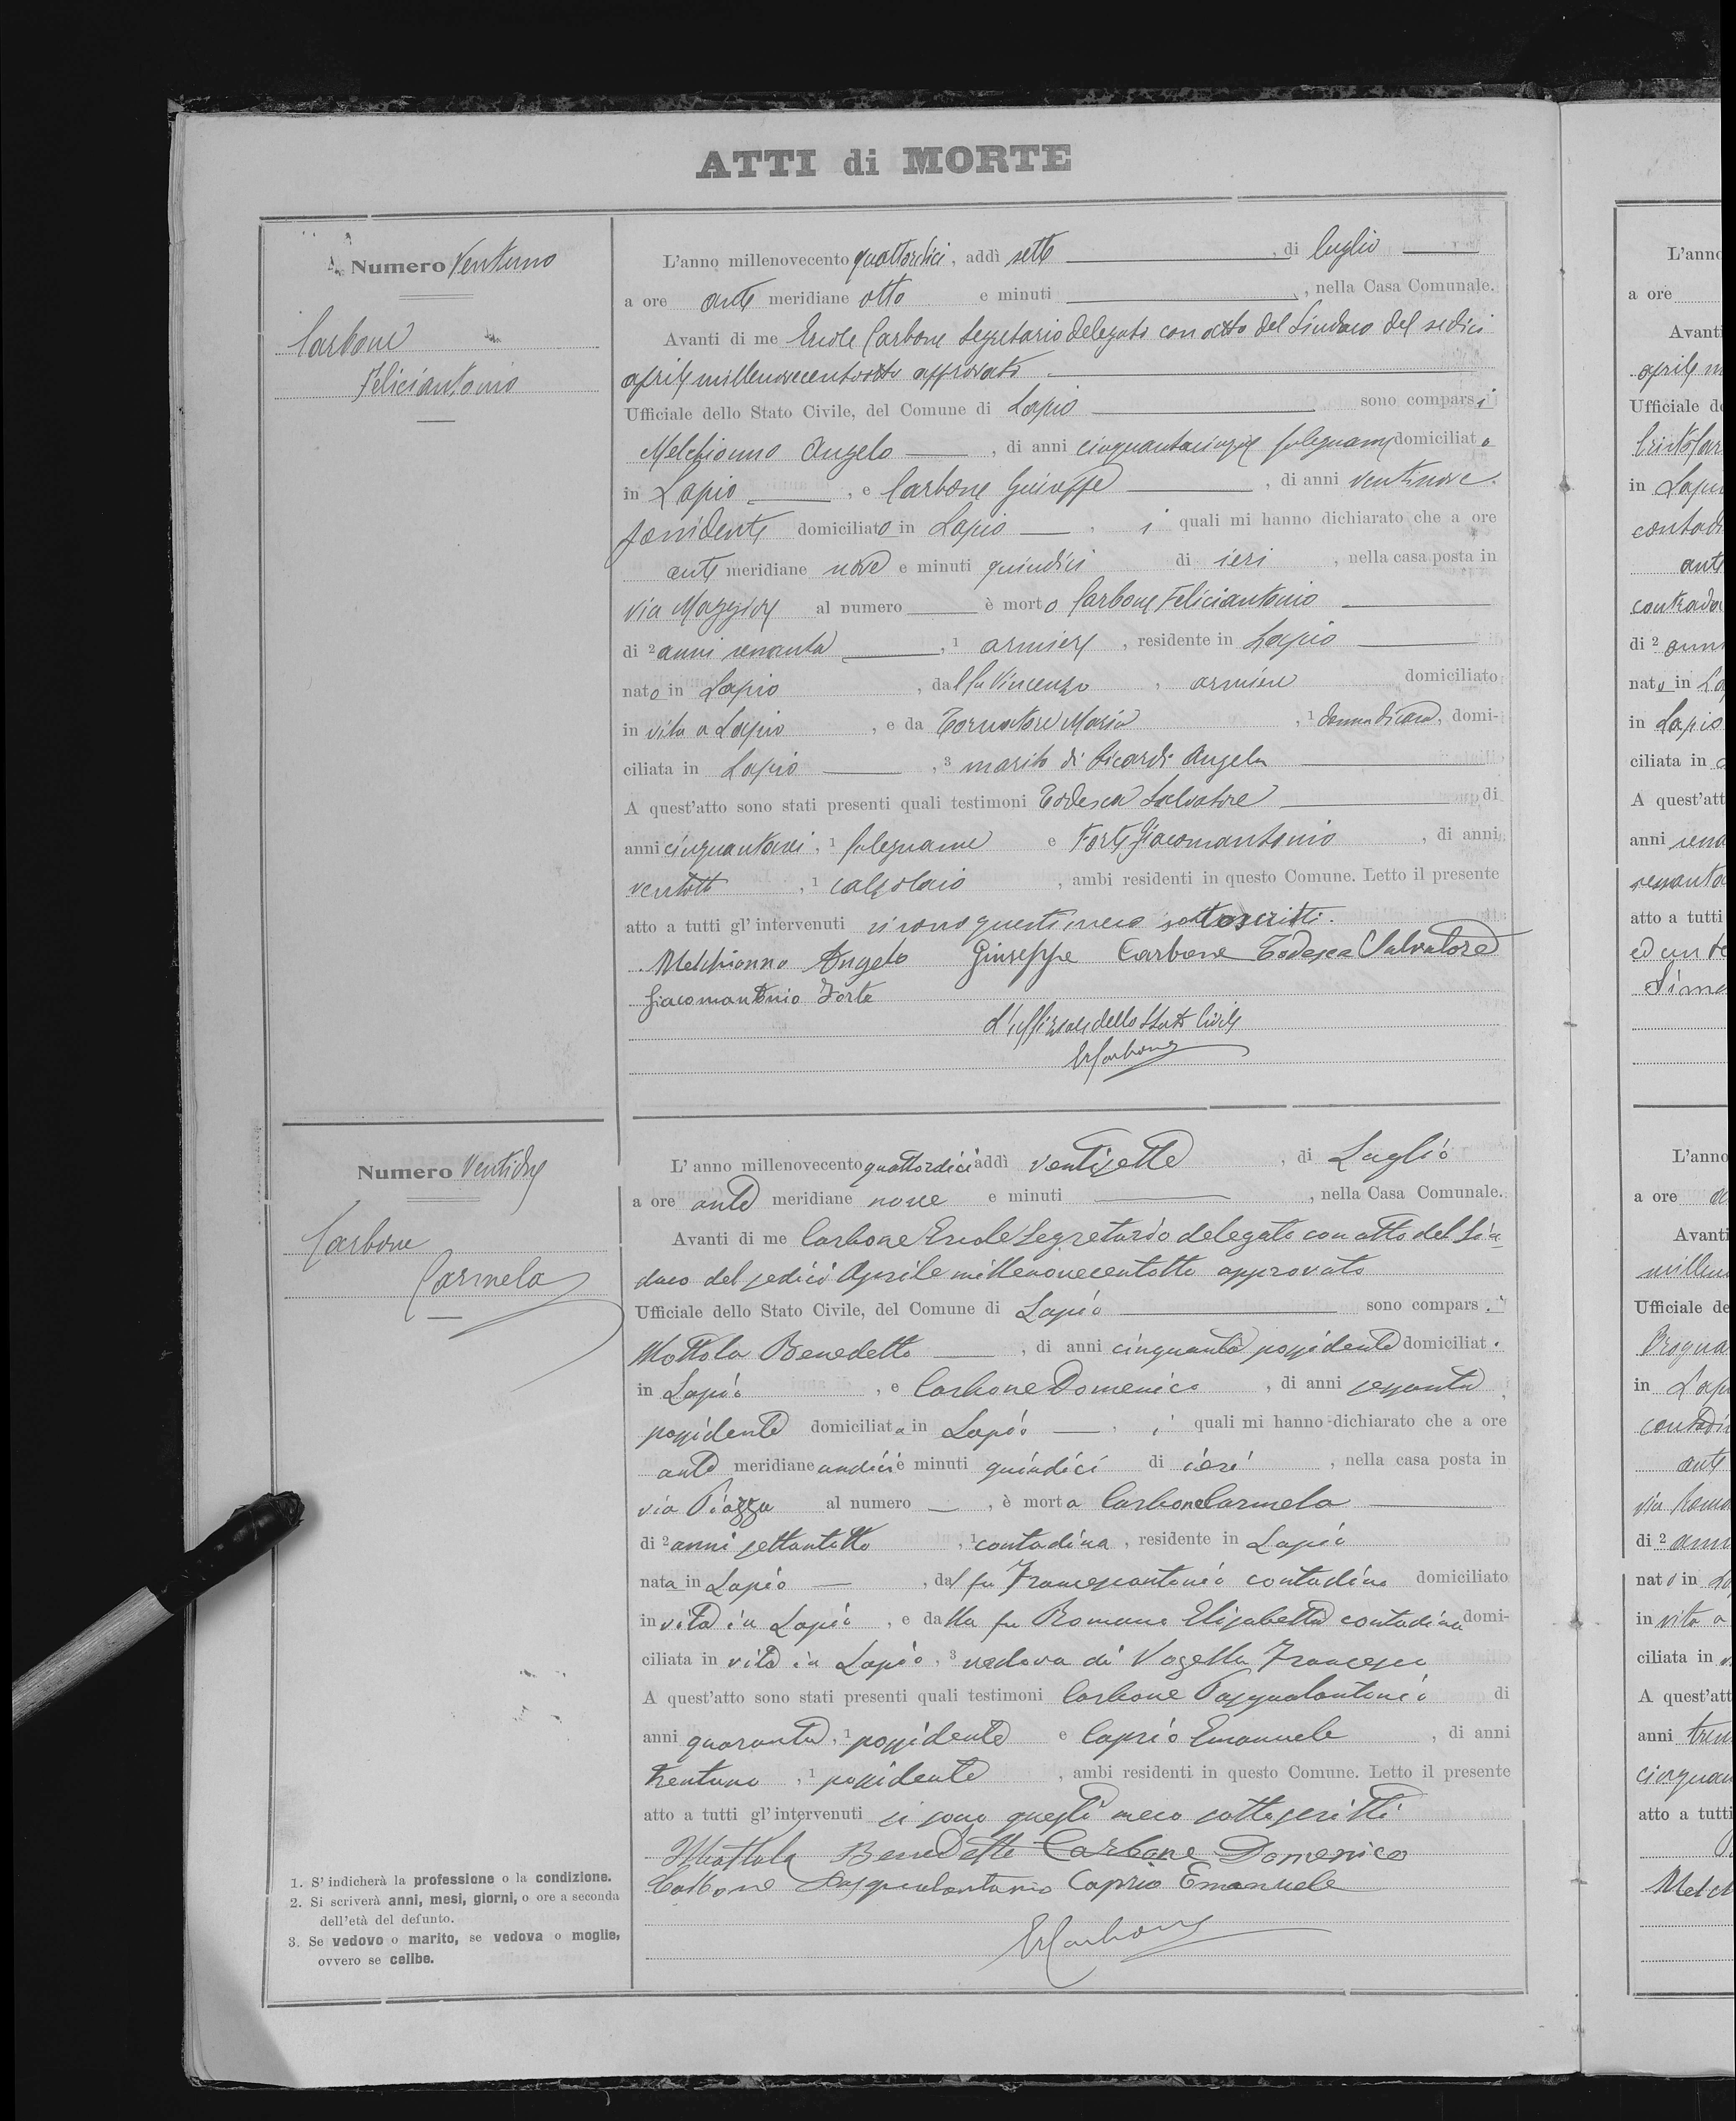 ATTI di MORTE
Numero Ventuno
Carbone
Feliciantonio
L'anno millenovecento quattordici, addì sette, di luglio
a ore ante meridiane otto e minuti, nella Casa Comunale.
Avanti di me Ercole Carbone Segretario delegato con atto del Sindaco del sedici
aprile millenovecentootto approvato
Ufficiale dello Stato Civile, del Comune di Lapio sono comparsi
Melchionno Angelo, di anni cinquantacinque falegname domiciliato
in Lapio, e Carbone Giuseppe, di anni ventinove
possidente domiciliato in Lapio, i quali mi hanno dichiarato che a ore
ante meridiane nove e minuti quindici di ieri, nella casa posta in
via Maggiore al numero è morto Carbone Feliciantonio
di 2 anni sessanta, 1 armiere, residente in Lapio
nato in Lapio, dal fu Vincenzo, armiere domiciliato
in vita a Lapio, e da Tornatore Maria, 1 donna di casa, domi-
ciliata in Lapio, 3 marito di Picardi Angela
A quest'atto sono stati presenti quali testimoni Todesca Salvatore di
anni cinquantasei, 1 falegname e Forte Giacomantonio, di anni
ventotto, 1 calzolaio, ambi residenti in questo Comune. Letto il presente
atto a tutti gl'intervenuti si sono questi meco sottoscritti.
Melchionno Angelo Giuseppe Carbone Todesca Salvatore
Giacomantonio Forte
L'uffiziale dello Stato Civile
ErCarbone
Numero Ventidue
Carbone
Carmela
L'anno millenovecento quattordici addì ventisette, di Luglio
a ore ante meridiane nove e minuti, nella Casa Comunale.
Avanti di me Carbone Ercole Segretario delegato con atto del Sin-
daco del sedici Aprile millenovecentotto approvato
Ufficiale dello Stato Civile, del Comune di Lapio sono comparsi
Mottola Benedetto, di anni cinquanta possidente domiciliat.
in Lapio, e Carbone Domenico, di anni sessanta,
possidente domiciliato in Lapio, i quali mi hanno dichiarato che a ore
ante meridiane undici e minuti quindici di ieri, nella casa posta in
via Piazza al numero, è morta Carbone Carmela
di 2 anni settantotto, 1 contadina, residente in Lapio
nata in Lapio, dal fu Francescantonio contadino domiciliato
in vita in Lapio, e dalla fu Romano Elisabetta contadina domi-
ciliata in vita in Lapio, 3 vedova di Vagella Francesco
A quest'atto sono stati presenti quali testimoni Carbone Pasqualantonio di
anni quaranta, 1 possidente e Caprio Emanuele, di anni
trentuno, 1 possidente, ambi residenti in questo Comune. Letto il presente
atto a tutti gl'intervenuti si sono questi meco sottoscritti
Mottola Benedetto Carbone Domenico
Carbone Pasqualantonio Caprio Emanuele
ErCarbone
1. S'indicherà la professione o la condizione.
2. Si scriverà anni, mesi, giorni, o ore a seconda
dell'età del defunto.
3. Se vedovo o marito, se vedova o moglie,
ovvero se celibe.